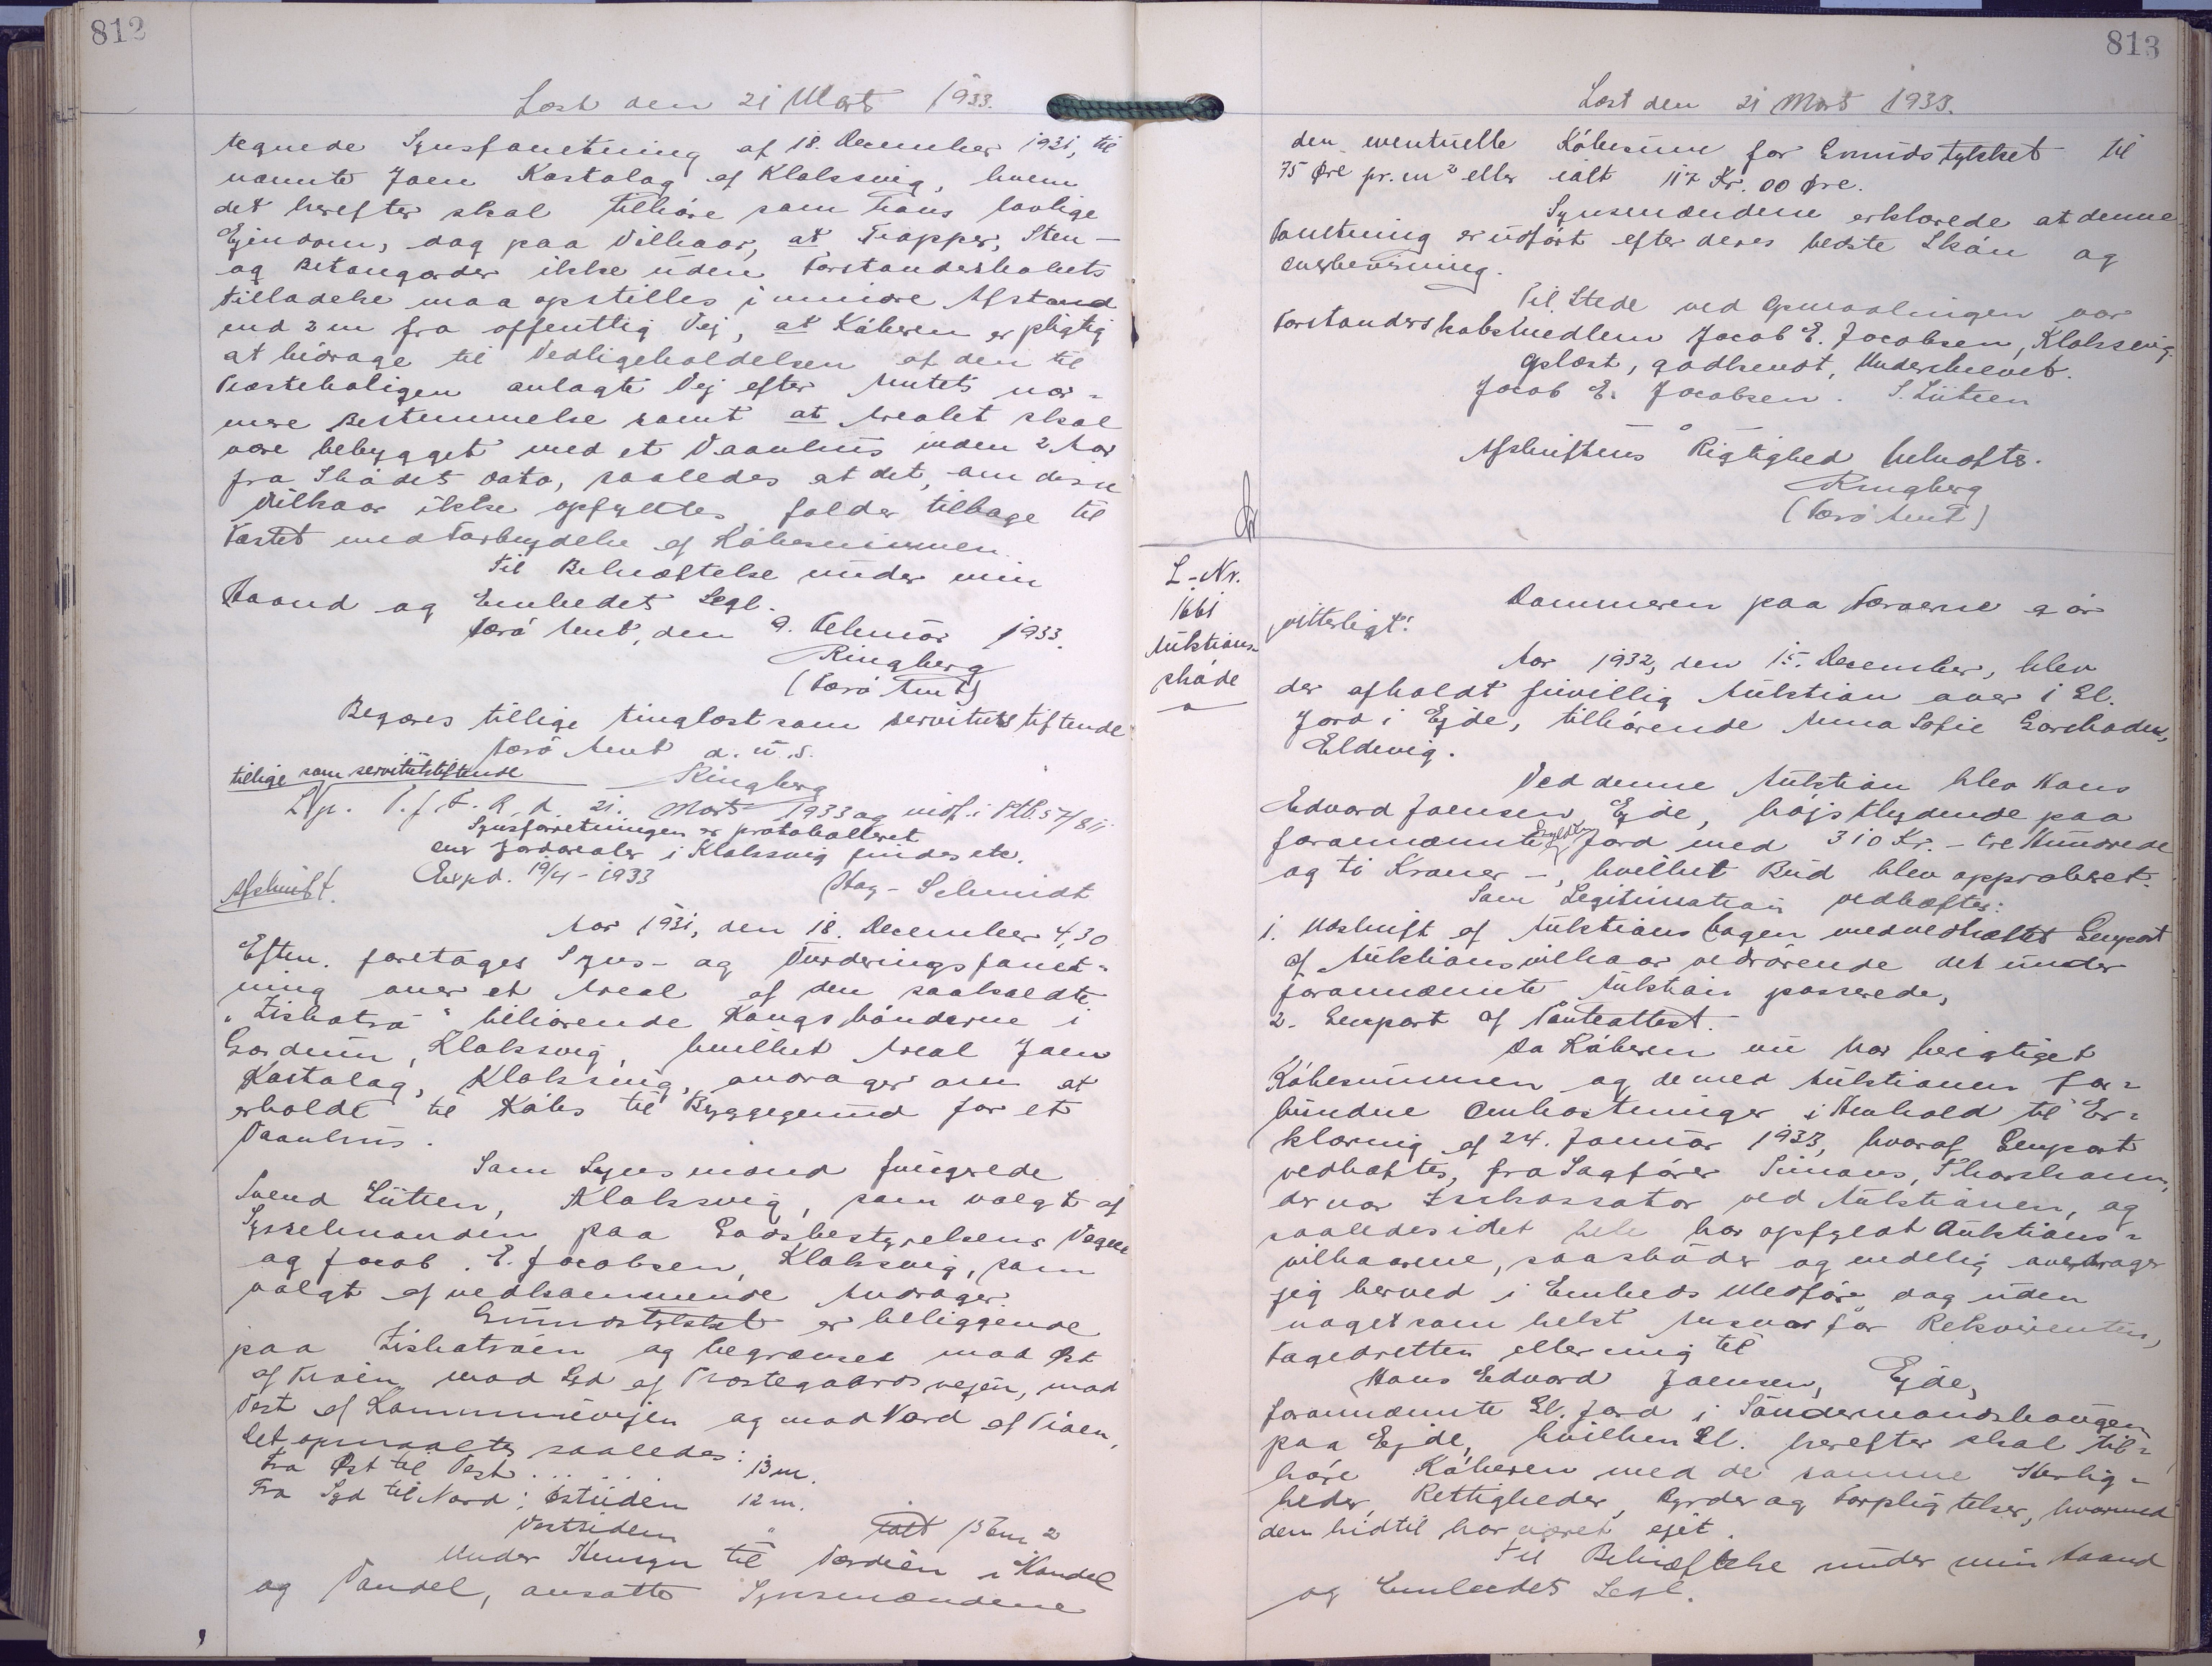 812
Læst den 21 Marts 1933.
tegnede Synsforretning af 18. December 1931, til
nævnte Joen Kastalag af Klaksvig, hvem
det herefter skal tilhøre som hans lovlige
Ejendom, dog paa Vilkaar, at Trapper, Sten-
og Betongærder ikke uden Forstanderskabets
Tilladelse maa opstilles i mindre Afstand
end 2 m fra offentlig Vej, at Køberen er pligtig
at bidrage til Vedligeholdelsen af den til
Præsteboligen anlagte Vej efter Amtets nær-
mere Bestemmelse samt at Arealet skal
være bebygget med et Vaanhus inden 2 Aar
fra Skødets Dato, saaledes at det, om disse
Vilkaar ikke opfyldtes, falder tilbage til
Fæstet mod Forbrydelse af Købesummen.
Til Bekræftelse under min
Haand og Embedets Segl.
Færø Amt, den 9. Februar 1933.
Ringberg
(Færø Amt)
Begæres tillige tinglæst som servitutstiftende
Færø Amt d. u. s.
tillige som servitutstiftende
Ringberg
L p. T. f. F. R. d. 21. Marts 1933 og indf. i Ptb. 57/811
Synsforretningen er protokolleret
over Jordarealer i Klaksvig findes etc.
Exped. 19/4 - 1933
Hag-Schmidt
Afskrift.
Aar 1931, den 18. December 4,30
Eftm. foretages Syns- og Vurderingsforret-
ning over et Areal af den saakaldte
"Ziskatrø" tilhørende Kongsbønderne i
Gærdum, Klaksvig, hvilket Areal Joen
Kastalag, Klaksvig, andrager om at
erholde til Købs til Byggegrund for et
Vaanhus.
Som Synsmænd fungerede
Svend Lützen, Klaksvig, som valgt af
Sysselmanden paa Godsbestyrelsens Vegne
og Jacob E. Jacobsen, Klaksvig, som
valgt af vedkommende Andrager.
Grundstykket er beliggende
paa Ziskatrøen og begrænses mod Øst
af Trøen, mod Syd af Præstegaardsvejen, mod
Vest af Kommunevejen og mod Nord af Trøen,
Det opmaaltes saaledes:
Fra Øst til Vest: 13 m.
Fra Syd til Nord: Østsiden 12 m.
Vestsiden " ialt 156 m2
Under Hensyn til Værdien i Handel
og Vandel, ansatte Synsmændene
813
Læst den 21 Marts 1933.
den eventuelle Købesum for Grundstykket til
75 Øre pr. m2 eller ialt 117 Kr. 00 Øre.
Synsmændene erklærede at denne
Forretning er udført efter deres bedste Skøn og
Overbevisning.
Til Stede ved Opmaalingen var
Forstanderskabsmedlem Jacob E. Jacobsen, Klaksvig.
Oplæst, godkendt, Underskrevet.
Jacob E. Jacobsen. S. Lützen
Afskriftens Rigtighed bekræftes.
Ringberg
(Færø Amt)
L-Nr.
1661
Auktions-
skøde
Dommeren paa Færøerne gør
vitterligt:
Aar 1932, den 15. December, blev
der afholdt frivillig Auktion over 1 Gl.
Jord i Ejde, tilhørende Anna Sofie Garebaden,
Eldevig.
Ved denne Auktion blev Hans
Edvard Joensen, Ejde, højstbydende paa
forannævnte Gylden Jord med 310 Kr. - tre Hundrede
og ti Kroner -, hvilket Bud blev approberet.
Som Legitimation vedhæftes:
1. Udskrift af Auktionsbogen med vedhæftet Genpart
af Auktionsvilkaar vedrørende det under
forannævnte Auktion passerede,
2. Genpart af Panteattest.
Da Køberen nu har berigtiget
Købesummen og de med Auktionen for-
bundne Omkostninger i Henhold til Er-
klæring af 24. Januar 1933, hvoraf Genpart
vedhæftes, fra Sagfører Simons, Thorshavn,
der var Inkassator ved Auktionen, og
saaledes i det hele har opfyldt Auktions-
vilkaarene, saa skøder og endelig overdrager
jeg herved i Embeds Medfør dog uden
noget som helst Ansvar for Rekvirenten,
Fogedretten eller mig til
Hans Edvard Joensen, Ejde,
forannævnte Gl. Jord i Søndermandshaugen
paa Ejde, hvilken Gl. herefter skal til-
høre Køberen med de samme Herlig-
heder, Rettigheder, Byrder og Forpligtelser, hvormed
den hidtil har været ejet.
Til Bekræftelse under min Haand
og Embedets Segl.